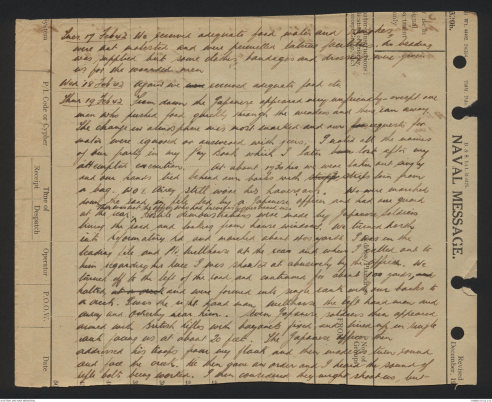 Tues 17 Feb 42 We received adequate food water and
were not molested and were permitted latrine facilities. No bedding
was supplied but some clothes, bandages and dressings were given
us for the wounded men
Wed 18 Feb 42 Again we received adequate food etc
Thurs 19 Feb 42 From dawn the Japanese appeared very unfriendly
men who pushed food quickly through the windows and then ran away
The change in atmosphere was most marked and our requests for
water were ignored or answered with jeers. I noted all the names
of our party in my Pay book which I later lost after my
attempted execution. At about 1730 hrs we were taken out singly
and our hands tied behind our backs with strips torn from
a bag. No 2 they still wore his haversack. We were marched
down the road in file led by a Japanese officer and had one guard
at the rear. Hostile demonstrations were made by Japanese soldiers
lining the road and looking from house windows. We turned
into Reformatory rd and marched about 200 yards I was in the
leading file and Pte Mellhouse at the rear and when I called out to
him regarding his face I was shouted at abusively by the officer. We
turned off to the left of the road and continued for about 100 yards,
halted and were formed into single rank with our backs to
a creek. I was the right hand man, Mellhouse the left hand man and
Avery and Otterley near him. Seven Japanese soldiers then appeared
armed with British rifles with bayonets fixed and lined up in single
rank facing us at about 20 feet. The Japanese officer then
addressed his troops from my flank and then made us turn round
and face the creek. He then gave an order and I heard the sound of
rifle bolts being worked. I then considered they might shoot us, but
System
P/L Code or Cypher
Time of
Receipt Despatch
Operator
P.O.O.W.
Date
NAVAL MESSAGE.
Revised
December